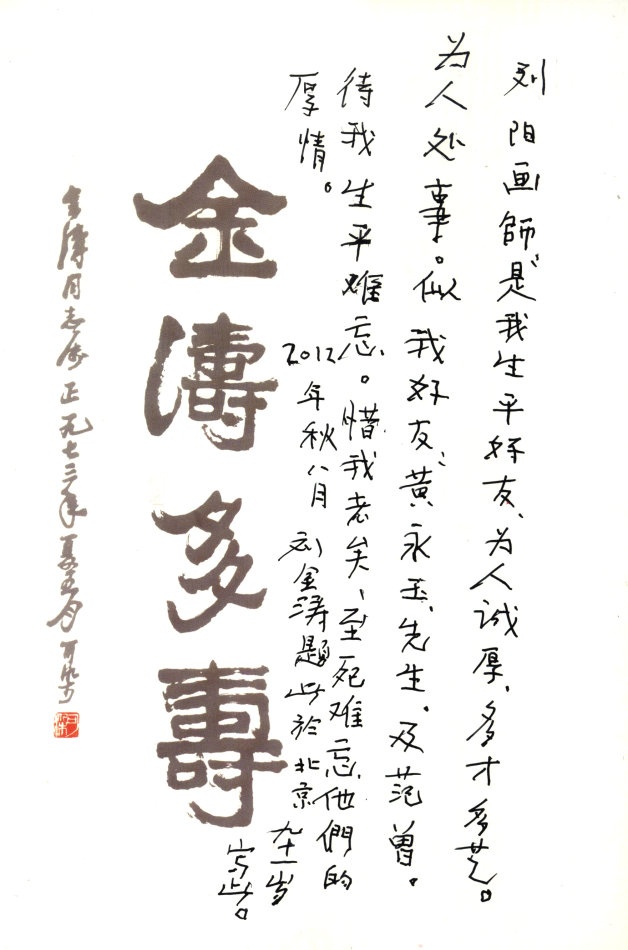 列阳画師是我生平好友、为人诚厚、多才多艺。
为人处事。似我好友、黄永玉、先生、及范曾。
待我生平难忘。惜我老矣、至死难忘他們的
厚情。
2012年秋八月刘金涛題此於北京
九十一岁
写此。
金濤多壽
金濤同志属正一九七三年夏五月可染